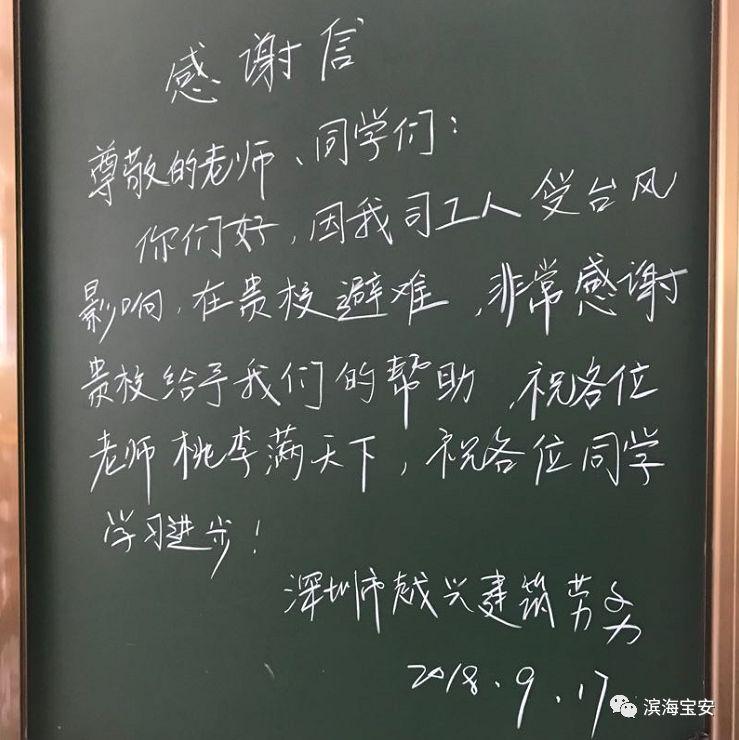 感谢信
尊敬的老师、同学们：
你们好，因我司工人受台风
影响，在贵校避难，非常感谢
贵校给予我们的帮助，祝各位
老师桃李满天下，祝各位同学
学习进步！
深圳市越兴建筑劳务
2018.9.17
滨海宝安